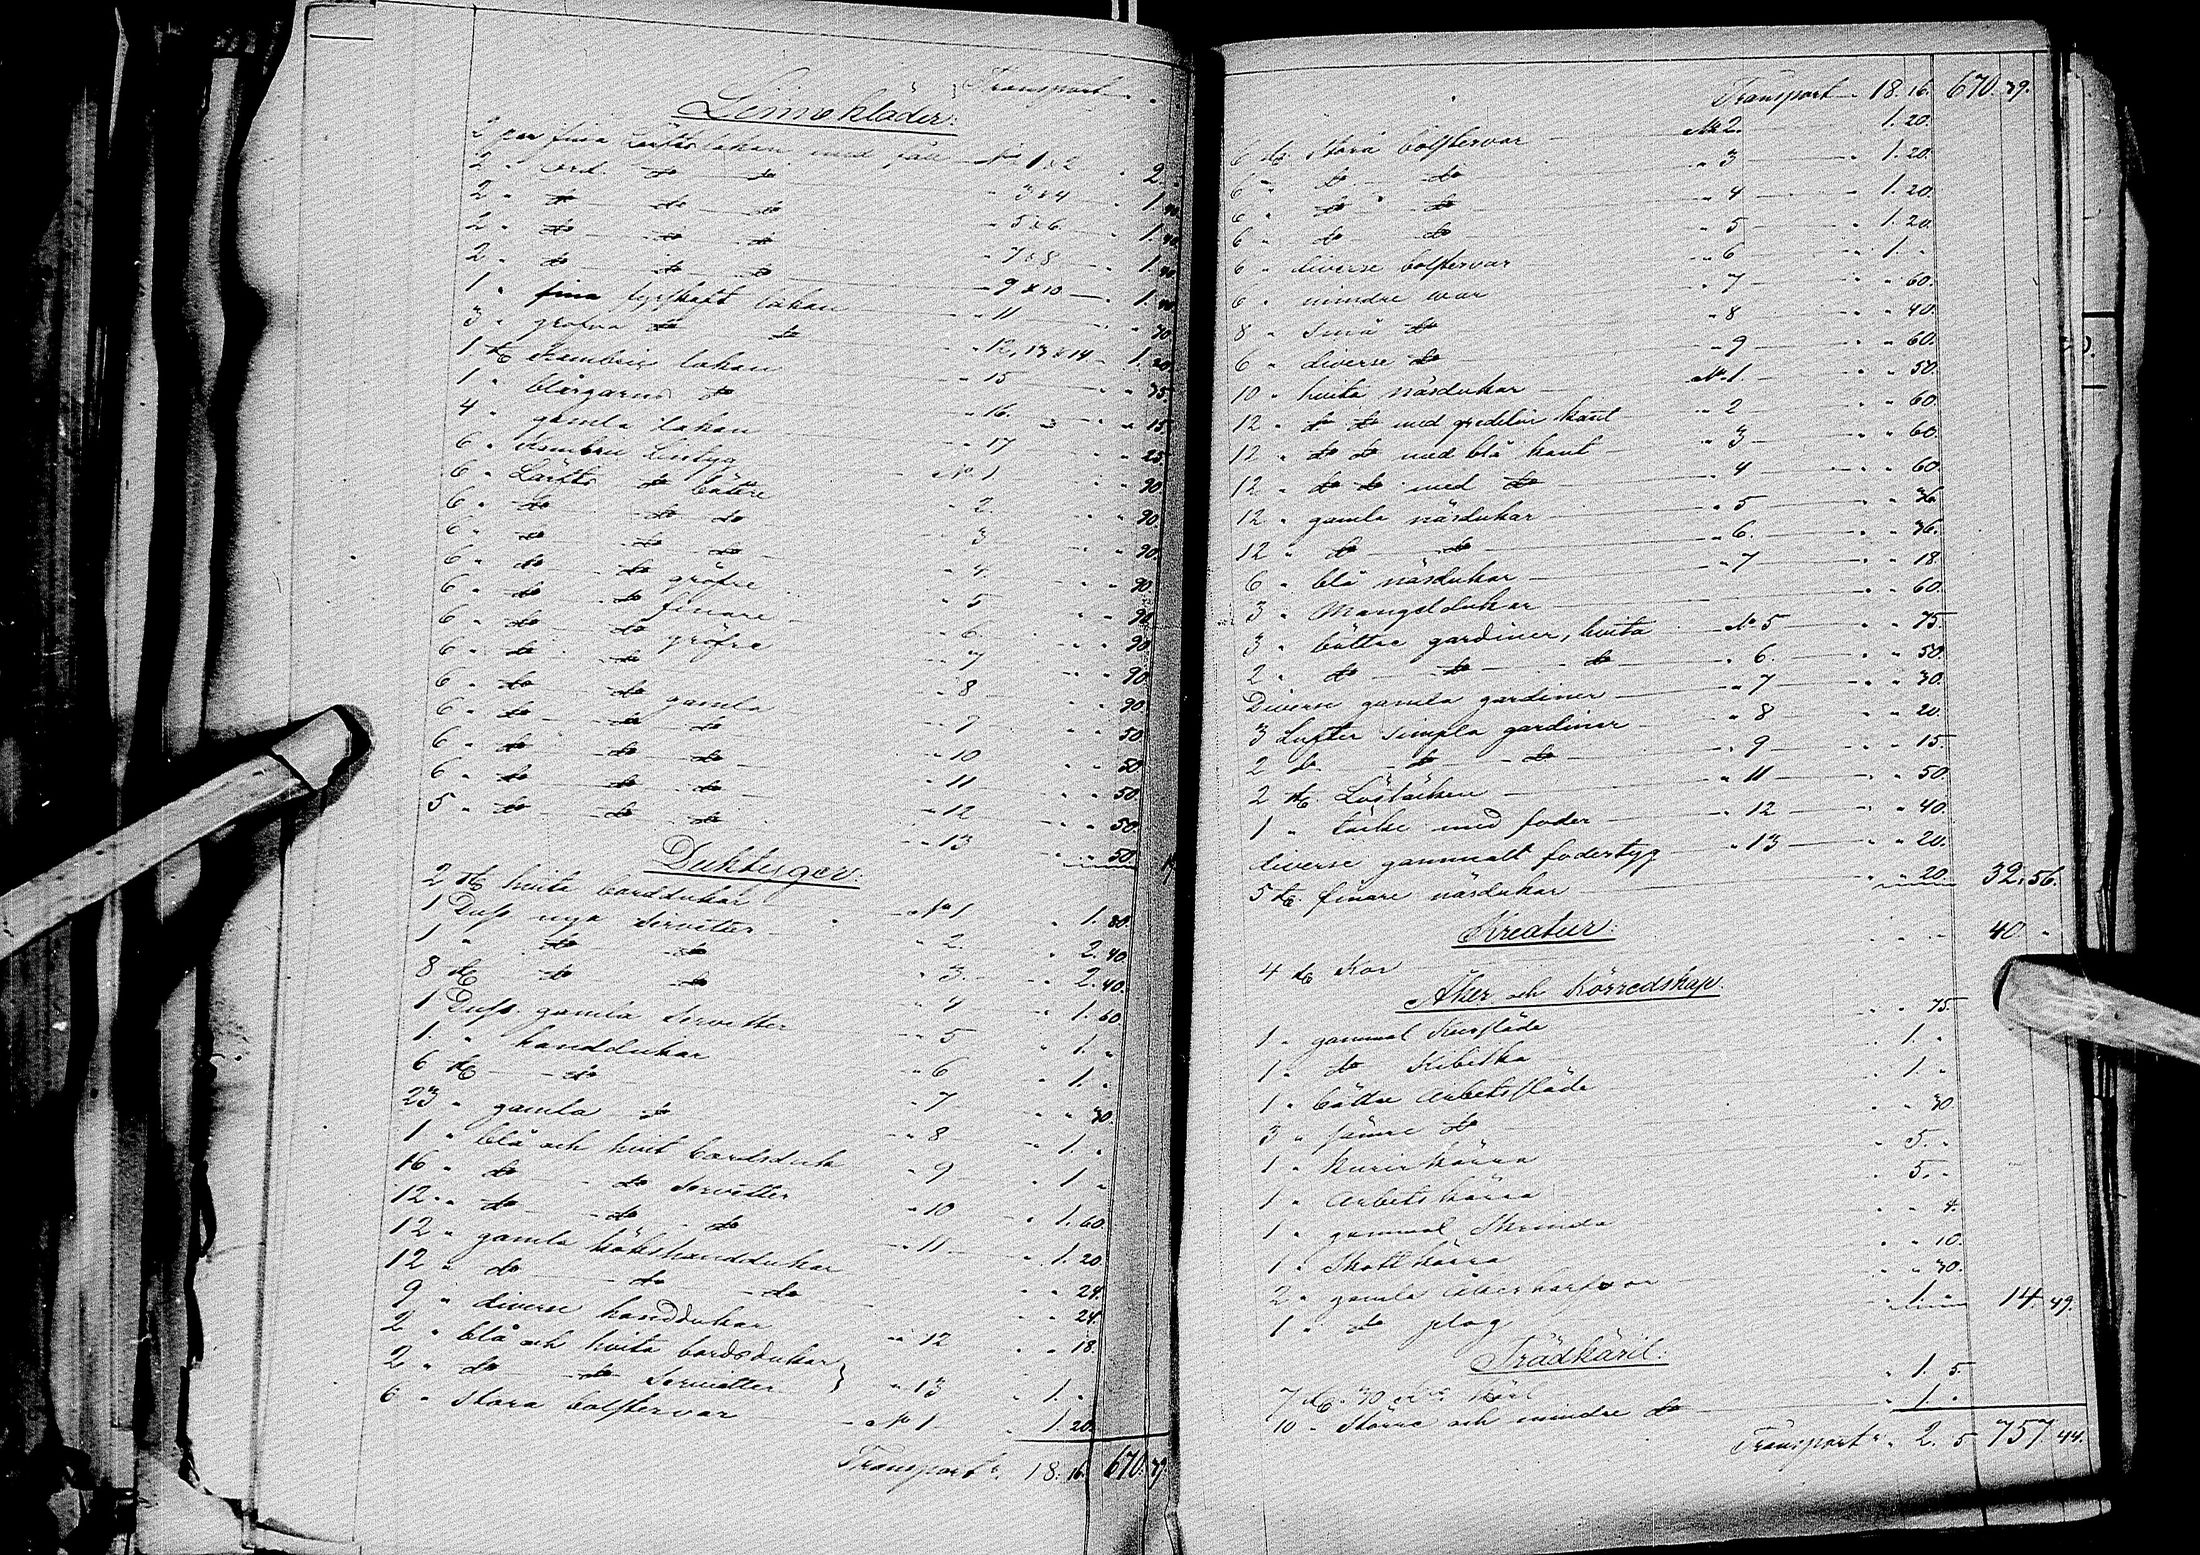 Transport
Linnekläder:
2 par fina Lärftslakan med fåll No 1 & 2 " 2. "
2 " Ord. do do " 3 & 4 " 1. 40.
2 " do do do " 5 & 6 " 1. 40.
2 " do do do " 7 & 8 " 1. 40.
2 " do do do " 9 & 10 " 1. 40.
1 " fina lakan " 11 " " 70.
3 " gröfva do do " 12, 13 & 14 " 1. 20.
1 st Kambrics lakan " 15 " " 75.
1 " blårgarns do " 16. " " 15.
4 " gamla lakan " 17 " " 25.
6 " Kambric Lintyg No 1 " " 90.
6 " Lärfts do bättre " 2. " " 90.
6 " do do do " 3 " " 90.
6 " do do do " 4. " " 90.
6 " do do gröfre " 5 " " 90.
6 " do do finare " 6 " " 90.
6 " do do gröfre " 7 " " 90.
6 " do do " 8 " " 90.
6 " do do gamla " 9 " " 50.
6 " do do do " 10 " " 50.
6 " do do do " 11 " " 50.
6 " do do do " 12 " " 50.
5 " do do do " 13 " " 50.
Duktyger:
2 st hvita borddukar No 1 " 1. 80.
1 Duss nya servetter " 2. " 2. 40.
1 " do do " 3. " 2. 40.
8 st do do " 4 " 1. 60.
1 Duss. gamla Servetter " 5 " 1. "
1. " handdukar " 6 " 1. "
6 st do " 7 " " 30.
23 " gamla do " 8 " 1. "
1 " blå och hvit bordsduk " 9 " 1 "
16 " do do servetter " 10 " 1. 60.
12 " do do do " 11 " 1. 20.
12 " gamla kökshanddukar " " 24.
12 " do do do " " 24.
9 " diverse handdukar " 12 " " 18.
2 " blå och hvita bordsdukar }
2 " do do Servetter } " 13 " 1. "
6 " Stora bolstervar No 1 " 1. 20.
Transport 18. 16. 670. 39.
Transport 18. 16. 670. 39.
6 st. Stora bolstervar No 2. 1. 20.
6 " do do " 3 " 1. 20.
6 " do do " 4 " 1. 20.
6 " do do " 5 " 1. 20.
6 " diverse bolstervar " 6 " 1. "
6 " mindre war " 7 " " 60.
8 " små do " 8 " " 40.
6 " diverse do " 9 " " 60.
10 " hvita näsdukar No 1. " " 50.
12 " do do med gredelin kant " 2 " " 60.
12 " do do med blå kant " 3 " " 60.
12 " do do med do " 4 " " 60.
12 " gamla näsdukar " 5 " " 36.
12 " do do " 6. " " 36.
6 " blå näsdukar " 7 " " 18.
3 " Mangeldukar " " 60.
3 " bättre gardiner, hvita No 5 " " 75.
2 " do do do " 6. " " 50.
Diverse gamla gardiner " 7 " " 30.
3 Lufter simpla gardiner " 8 " " 20.
2 do do do " 9 " " 15.
2 st. Löstäcken " 11 " " 50.
1 " täcke med foder " 12 " " 40.
diverse gammalt fodertyg " 13 " " 20.
5 st. finare näsdukar " " 20. 32. 56.
Kreatur:
4 st Kor 40. "
Åker och Körredskap.
1 " gammal Kursläde " " 75.
1 " do Kibitka " 1. "
1 " bättre Arbetssläde " 1. "
3 " sämre do " " 30
1 " Kurirkärra " 5. "
1 " Arbetskärra " 5. "
1 " gammal Skrinda " " 4.
1 " Skottkärra " " 10.
2 " gamla Åkerharfvor " " 30.
1 " do plog " 1. " 14. 49.
Trädkäril:
7 st. 30 kärl " 1. 5.
10 " Större och mindre do " 1. "
Transport " 2. 5 757. 44.